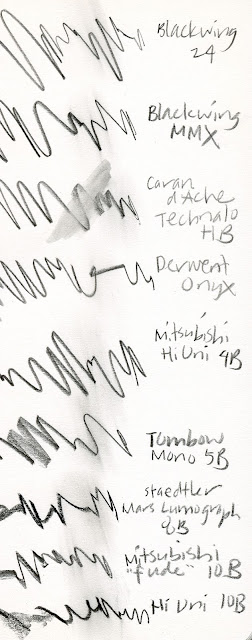 Blackwing
24
Blackwing
MMX
Caran
d'Ache
Technalo
HB
Derwent
Onyx
Mitsubishi
HiUni 4B
Tombow
Mono 5B
staedtler
Mars Lumograph
8B
Mitsubishi
"fude" 10B
Hi Uni 10B